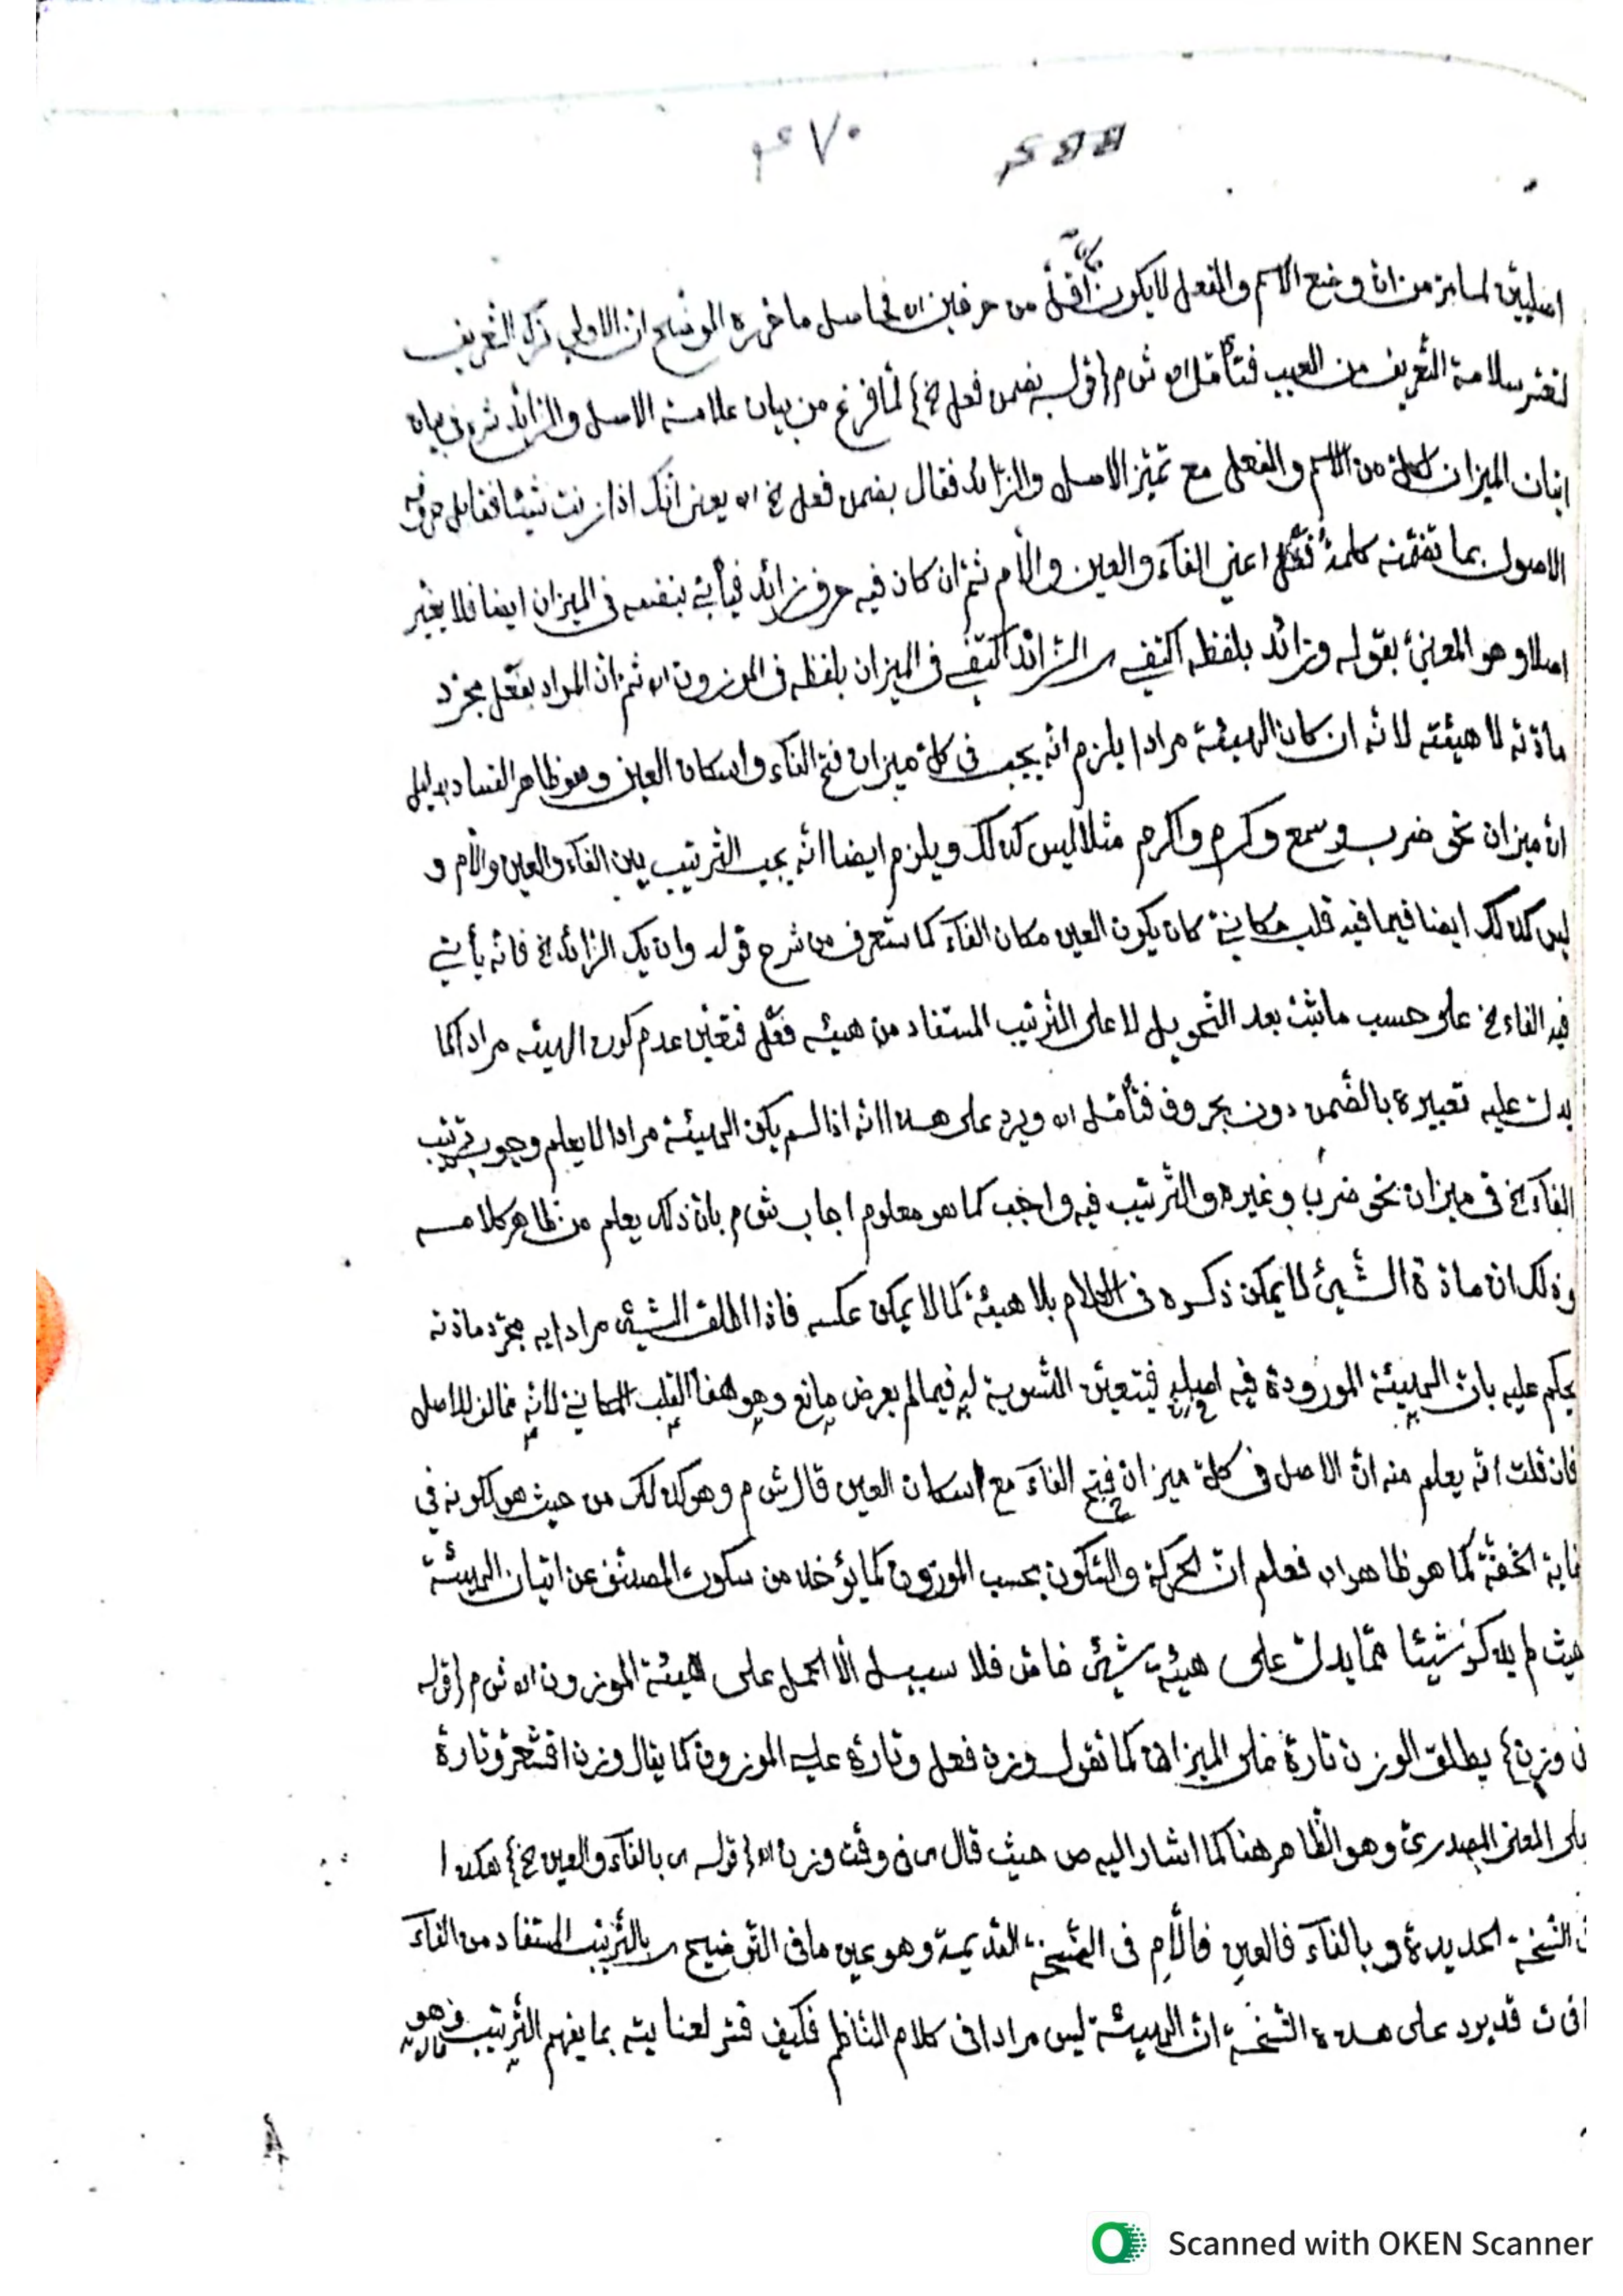 ٤٧٠
اصليين لما مرّ من انّ وضع الاسم والفعل لا يكون اقلّ من حرفين اه فحاصل ما حرره الموضح ان الاولى ترك التعريف
سلامة التّعريف من العيب فتأمّل اه ش م {قوله بضمن فعل الخ} لمّا فرغ من بيان علامة الاصل والزّائد شرع في بيان
اتيان الميزان لكلّ من الاسم والفعل مع تميّز الاصل والزّائد فقال بضمن فعل الخ اه يعني انّك اذا زنت شيئا فقابل حروفه
الاصول بما تضمّنه كلمة فَعْل اعني الفاء والعين والّلام ثمّ ان كان فيه حرف زائد فيأتي بنفسه في الميزان ايضا فلا يغيّر
اصلا وهو المعنيّ بقوله وزائد بلفظه اكتفي ای الزّائد اكتفي في الميزان بلفظه في الموزون اه ثمّ انّ المراد بفعل مجرّد
مادّته لا هيئته لانّه ان كان الهيئة مرادا يلزم انّه يجب في كلّ ميزان فتح الفاء واسكان العين وهو ظاهر الفساد بدليل
انّ ميزان نحو ضرب وسمع وكرم واكرم مثلا ليس كذلك ويلزم ايضا انّه يجب التّرتيب بين الفاء والعين والّلام و
ليس كذلك ايضا فيما فيه قلب مكانيّ كان يكون العين مكان الفاء كما ستعرف من شرح قوله وان يك الزّائد الخ فانّه يأتي
فيه الفاء الخ على حسب ما ثبت بعد التّحويل لا على التّرتيب المستفاد من هيئة فَعْل فتعيّن عدم كون الهيئة مرادا كما
يدلّ عليه تعبيره بالضّمن دون بحروف فتأمّل اه ويرد على هذا انّه اذا لم يكن الهيئة مرادا لا يعلم وجوب ترتيب
الفاء الخ في ميزان نحو ضرب وغيره والتّرتيب فيه واجب كما هو معلوم اجاب ش م بانّ ذلك يعلم من ظاهر كلامه
وذلك انّ مادّة الشّيئ لا يمكن ذكره في الكلام بلا هيئة كما لا يمكن عكسه فاذا اطلق الشّيئ مرادا به مجرّد مادّته
يحكم عليه بانّ الهيئة المورودة فيه اصل فيتعيّن التّسوية له فيما لم يعرض مانع وهو هنا القلب المكانيّ لانّه مخالف للاصل
فان قلت انّه يعلم منه انّ الاصل في كلّ ميزان فتح الفاء مع اسكان العين قال ش م وهو كذلك من حيث هو لكونه في
غاية الخفّة كما هو ظاهر اه فعلم انّ الحركة والسّكون بحسب الموزون كما يؤخذ من سكوت المصنّف عن اتيان الهيئة
حيث لم يذكر شيئا ممّا يدلّ على هيئة شيئ خاصّ فلا سبيل الّا الحمل على هيئة الموزون اه ش م {قوله
في وزن} يطلق الوزن تارة على الميزان كما تقول وزن فعل وتارة على الموزون كما يقال وزن اقشعرّ وتارة
على المعنى المصدريّ وهو الظّاهر هنا كما اشار اليه ص حيث قال ای في وقت وزن اه {قوله ای بالفاء والعين الخ} هكذا
في النّسخة الجديدة وبالفاء فالعين فالّلام في النّسخة القديمة وهو عين ما في التّوضيح ای بالتّرتيب المستفاد من الفاء
قد يرد على هذه النّسخة انّ الهيئة ليس مرادا في كلام النّاظم فكيف فسّر لعنايته بما يفهم التّرتيب وهو
Scanned with OKEN Scanner